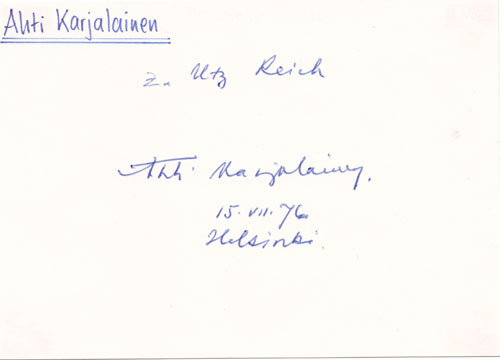 Ahti Karjalainen
Zu Utz Reich
Ahti Karjalainen.
15.VII.76
Helsinki.